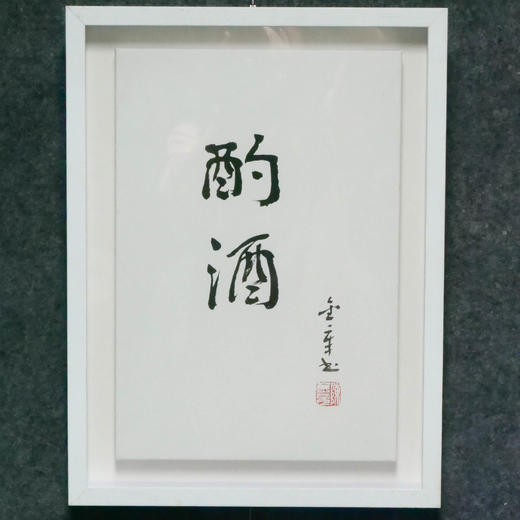 酌酒
金章书